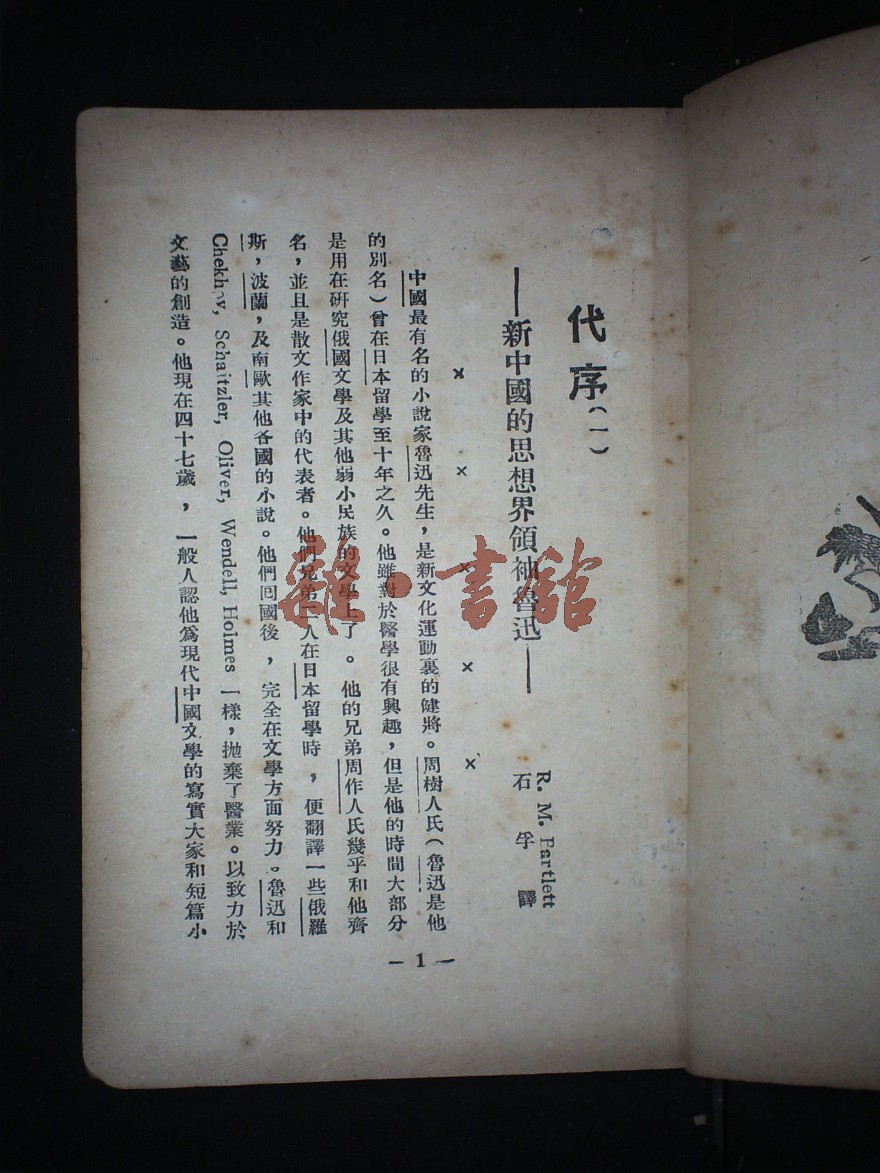 代序(一)
——新中國的思想界領袖魯迅——
R. M. Bartlett
石孚譯
× × × × ×
中國最有名的小說家魯迅先生，是新文化運動裏的健將。周樹人氏(魯迅是他
的別名)曾在日本留學至十年之久。他雖對於醫學很有興趣，但是他的時間大部分
是用在研究俄國文學及其他弱小民族的文學上了。他的兄弟周作人氏幾乎和他齊
名，並且是散文作家中的代表者。他們兄弟二人在日本留學時，便翻譯一些俄羅
斯，波蘭，及南歐其他各國的小說。他們囘國後，完全在文學方面努力。魯迅和
Chekhov, Schaitzler, Oliver, Wendell, Holmes 一樣，拋棄了醫業。以致力於
文藝的創造。他現在四十七歲，一般人認他爲現代中國文學的寫實大家和短篇小
— 1 —
雜·書館